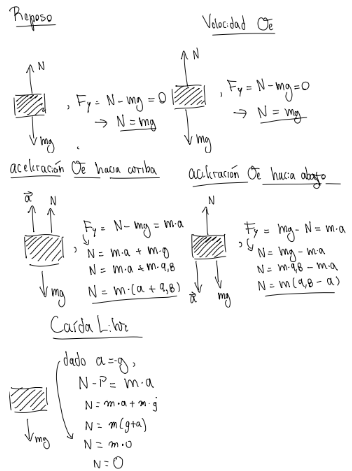 Reposo
N
, Fy = N - mg = 0
→ N = mg
mg
Velocidad Cte
N
, Fy = N - mg = 0
→ N = mg
mg
aceleración Cte hacia arriba
a⃗ N
, Fy = N - mg = m·a
N = m·a + m·g
N = m·a + m·9,8
N = m·(a + 9,8)
mg
aceleración Cte hacia abajo
N
, Fy = mg - N = m·a
N = mg - m·a
N = m·9,8 - m·a
N = m(9,8 - a)
a⃗ mg
Caída Libre
dado a = -g,
N - P = m·a
N = m·a + m·g
N = m(g+a)
N = m·0
N = 0
mg